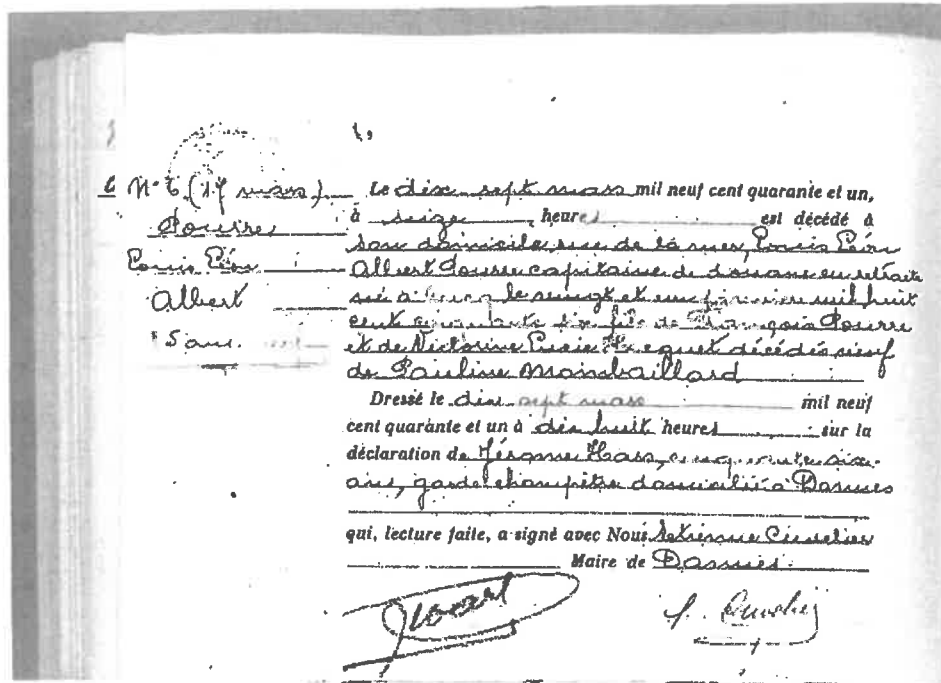 6 N° 6 (17 mars)
Pourre
Louis Léon
Albert
Le dix sept mars mil neuf cent quarante et un,
à seize heures est décédé à
son domicile rue de la mer, Louis Léon
Albert Pourre capitaine de douane en retraite
né à le vingt et un mil huit
cent cinquante fils de François Pourre
et de Victorine décédés veuf
de Pauline Monsbaillard
Dressé le dix sept mars mil neuf
cent quarante et un à dix huit heures sur la
déclaration de Jérome cinquante
ans, garde champêtre domicilié à Dannes
qui, lecture faite, a signé avec Nous
Maire de Dannes